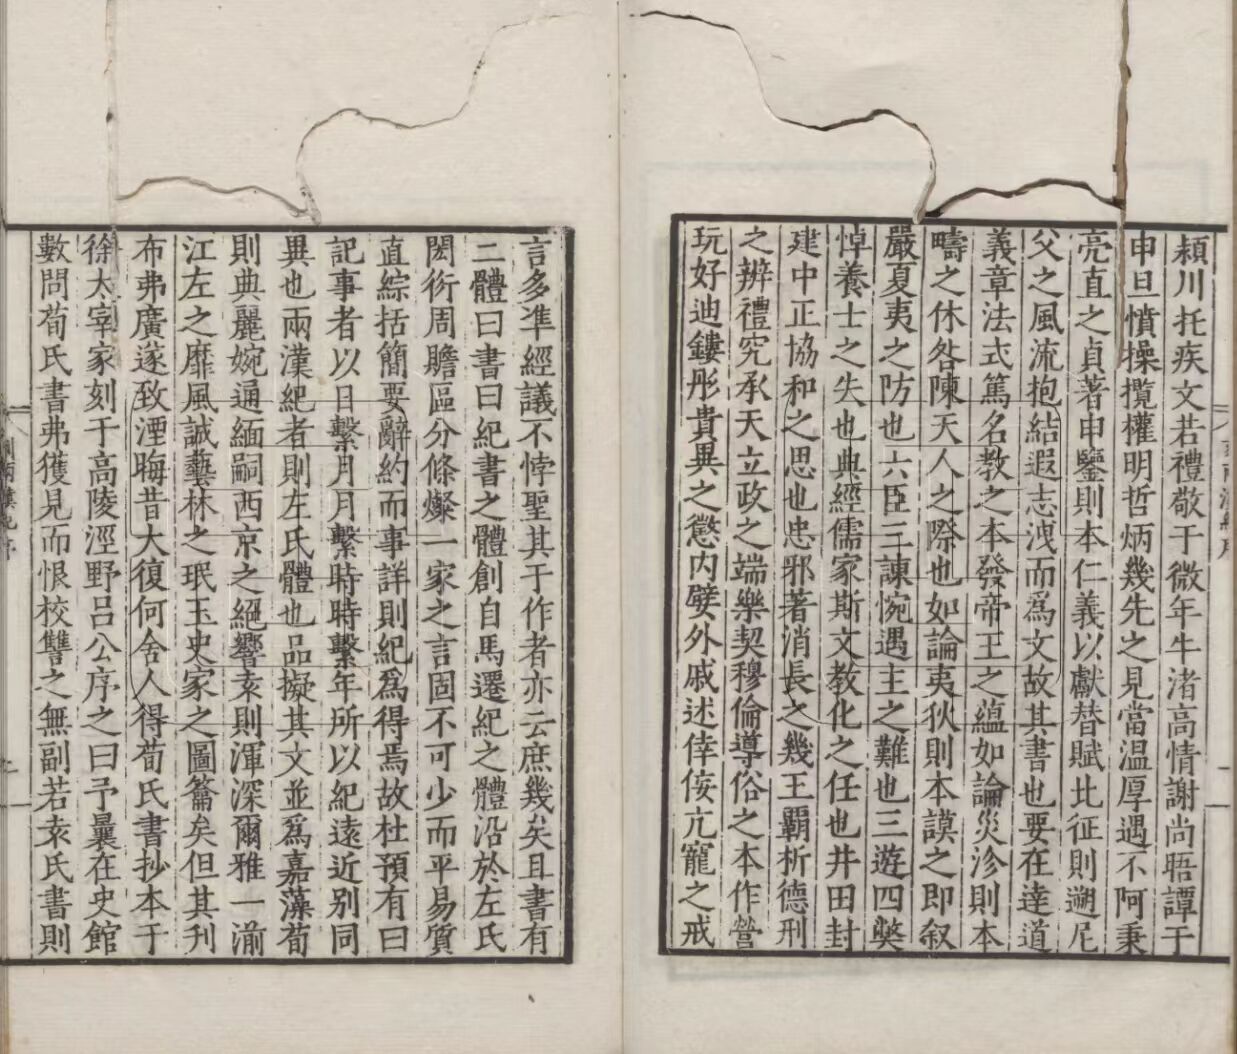 潁川托疾文若禮敬于微年牛渚高情謝尚晤譚于
申旦憤操攬權明哲炳幾先之見當温厚遇不阿秉
亮直之貞著申鑒則本仁義以獻替賦比征則遡尼
父之風流抱結遐志洩而爲文故其書也要在逹道
義章法式篤名教之本發帝王之蘊如論災沴則本
疇之休咎陳天人之際也如論夷狄則本謨之即叙
嚴夏夷之防也六臣三諫惋遇主之難也三遊四獘
悼養士之失也典經儒家斯文教化之任也井田封
建中正協和之思也忠邪著消長之幾王覇析德刑
之辨禮究承天立政之端樂契穆倫導俗之本作營
玩好迪鏤彤貴異之懲内嬖外戚述倖侫亢寵之戒
言多凖經議不悖聖其于作者亦云庶幾矣且書有
二體曰書曰紀書之體創自馬遷紀之體沿於左氏
閎衍周贍區分條燦一家之言固不可少而平易質
直綜括簡要辭約而事詳則紀爲得焉故杜預有曰
記事者以日繫月月繫時時繫年所以紀遠近别同
異也兩漢紀者則左氏體也品擬其文並爲嘉藻荀
則典麗婉通緬嗣西京之絕響袁則渾深爾雅一湔
江左之靡風誠藝林之珉玉史家之圖籥矣但其刋
布弗廣遂致湮晦昔大復何舍人得荀氏書抄本于
徐太宰家刻于高陵涇野呂公序之曰予曩在史館
數問荀氏書弗獲見而恨校讐之無副若袁氏書則